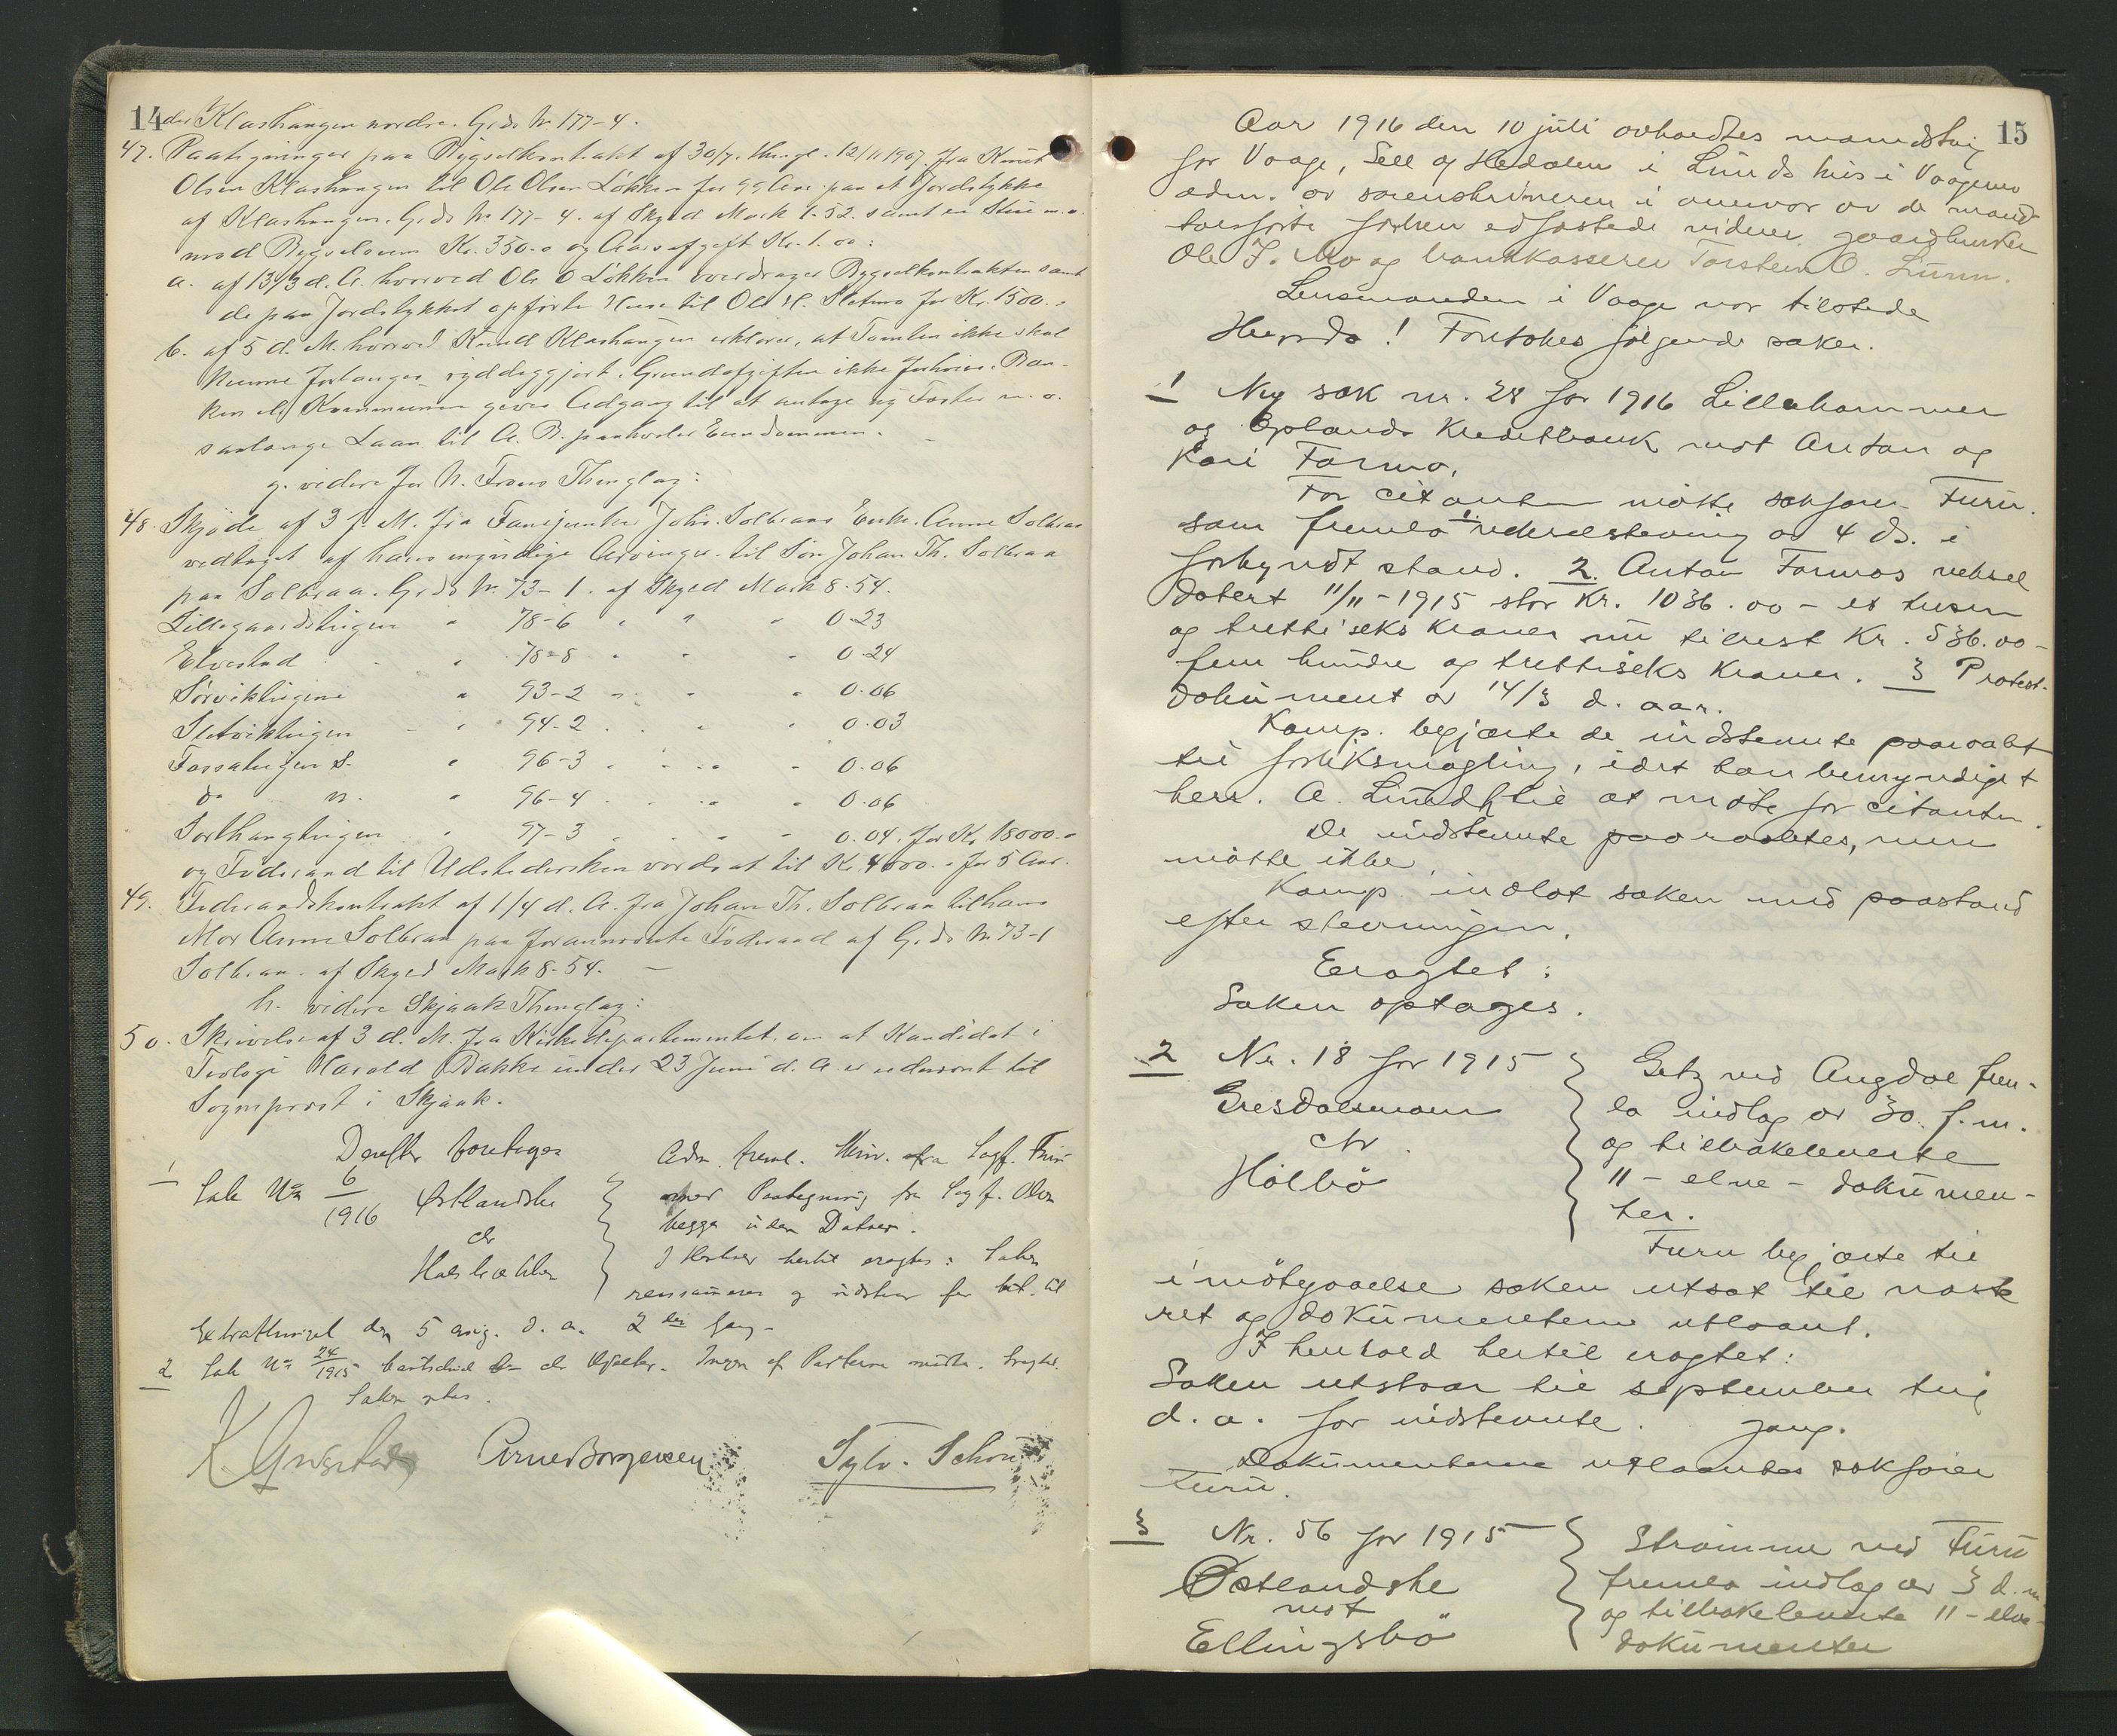 14 der Klashaugen nordre. Grds Nr 177-4.
47. Paategninger paa Bygselkontrakt af 30/7. thingl. 12/11 1907. fra Knut
Olsen Klashaugen til Ole Olsen Løkken for 99 Aar paa et Jordstykke
af Klashaugen. Grds Nr. 177-4. af Skyld Mark 1.52. samt en Stue m.v.
mod Bygselsum Kr. 350.- og Aarsafgift Kr. 1.00:
a. af 13/3 d. A. hvorved Ole O Løkken overdrager Bygselkontrakten samt
de paa Jordstykket opførte Huse til Ole H. for Kr. 1500.-
b. af 5 d. M. hvorved Knud Klashaugen erklærer, at Tomten ikke skal
kunne forlanges ryddiggjort. Grundafgiften ikke forhøies. Ban-
ken el. Kommunen gives Adgang til at antage ny Fæster m.v.
saalænge Laan til A. B. paahviler Eiendommen.
g. videre for N. Frons Thinglag:
48. Skjøde af 3 f. M. fra Fanejunker Johs. Solbraas Enke. Anne Solbraa
vedtaget af hans myndige Arvinger til Søn Johan Th. Solbraa
paa Solbraa. Grds Nr. 73-1. af Skyld Mark 8.54.
Lillegaardstrigen " 78-6 " " " 0.23
Elvestad " 78-8 " " " 0.24
93-2 " " " 0.06
94-2 " " " 0.03
S. " 96-3 " " " 0.06
do n. " 96-4 " " " 0.06
" 97-3 " " " 0.04. for Kr. 18000.-
og Føderaad til Udstedersken værdsat til Kr. 4000.- for 5 Aar.
49. Føderaadskontrakt af 1/4 d. A. fra Johan Th. Solbraa til hans
Mor Anne Solbraa paa forannævnte Føderaad af Grds Nr 73-1
Solbraa. af Skyld Mark 8.54. —
h. videre Skjaak Thinglag:
50. Skrivelse af 3 d. M. fra Kirkedepartementet, om at Kandidat i
Teologi Harald Bakke under 23 Juni d. A. er udnævnt til
Sogneprest i Skjaak.
Derefter foretages
1 Sak No 6/1916 Østlandske
ctr
Adm. freml. Skriv. fra Sagf. Furu
med Paategning fra Sagf. Olsen
begge uden Datoer.
I Henhold hertil eragtes: Saken
reassumeres og udstaar for Cit. til
Extrathinget den 5 aug. d. a. 2den Gang -
2 Sak No 24/1915 ctr Ingen af Parterne mødte. Eragtet.
Saken
Arne Borgersen Sylv. Schou
15
Aar 1916 den 10 juli avholdtes maanedsting
for Vaage, Sell og Hedalen i Lunds hus i Vaagemo
adm. av sorenskriveren i overvær av de mand-
talsførte forhen edfæstede vidner gaardbruker
Ole J. Mo og bankkasserer Torstein O. Sunn.
Lensmanden i Vaage var tilstede
Hvorda! Foretokes følgende saker.
1 Ny sak nr. 28 for 1916 Lillehammer
og Oplands Kreditbank mot Anton og
Kari Formo.
For citanten møtte sakfører Furu.
som fremla 1. vekselstevning av 4 ds. i
forkyndt stand. 2. Anton Formos veksel
datert 11/11-1915 stor Kr. 1036.00 - et tusen
og trettiseks kroner nu tilrest Kr. 536.00 -
fem hundre og trettiseks kroner. 3 Protest-
dokument av 14/3 d. aar.
Komp. begjærte de indstevnte paaropt
til forliksmægling, idet han bemyndiget
herr. A. Lundhlie at møte for citanten.
De indstevnte paaroptes, men
møtte ikke.
Komp. indlot saken med paastand
efter stevningen.
Eragtet:
Saken optages.
2 Nr. 18 for 1915
ctr.
Holbö
Getz ved Angdal frem-
la indlæg av 30. f. m.
og tilbakeleverte
11 - elve - dokumen-
ter.
Furu begjærte til
imøtegaaelse saken utsat til næste
ret og dokumenterne utlaant.
I henhold hertil eragtet:
Saken utstaar til september ting
d. a. for indstevnte. gang.
Dokumenterne utlaantes sakfører
Furu.
3 Nr. 56 for 1915
Østlandske
mot
Ellingsbö
Strømme ved Furu
fremla indlæg av 3 d. m.
og tilbakeleverte 11 - elve -
dokumenter